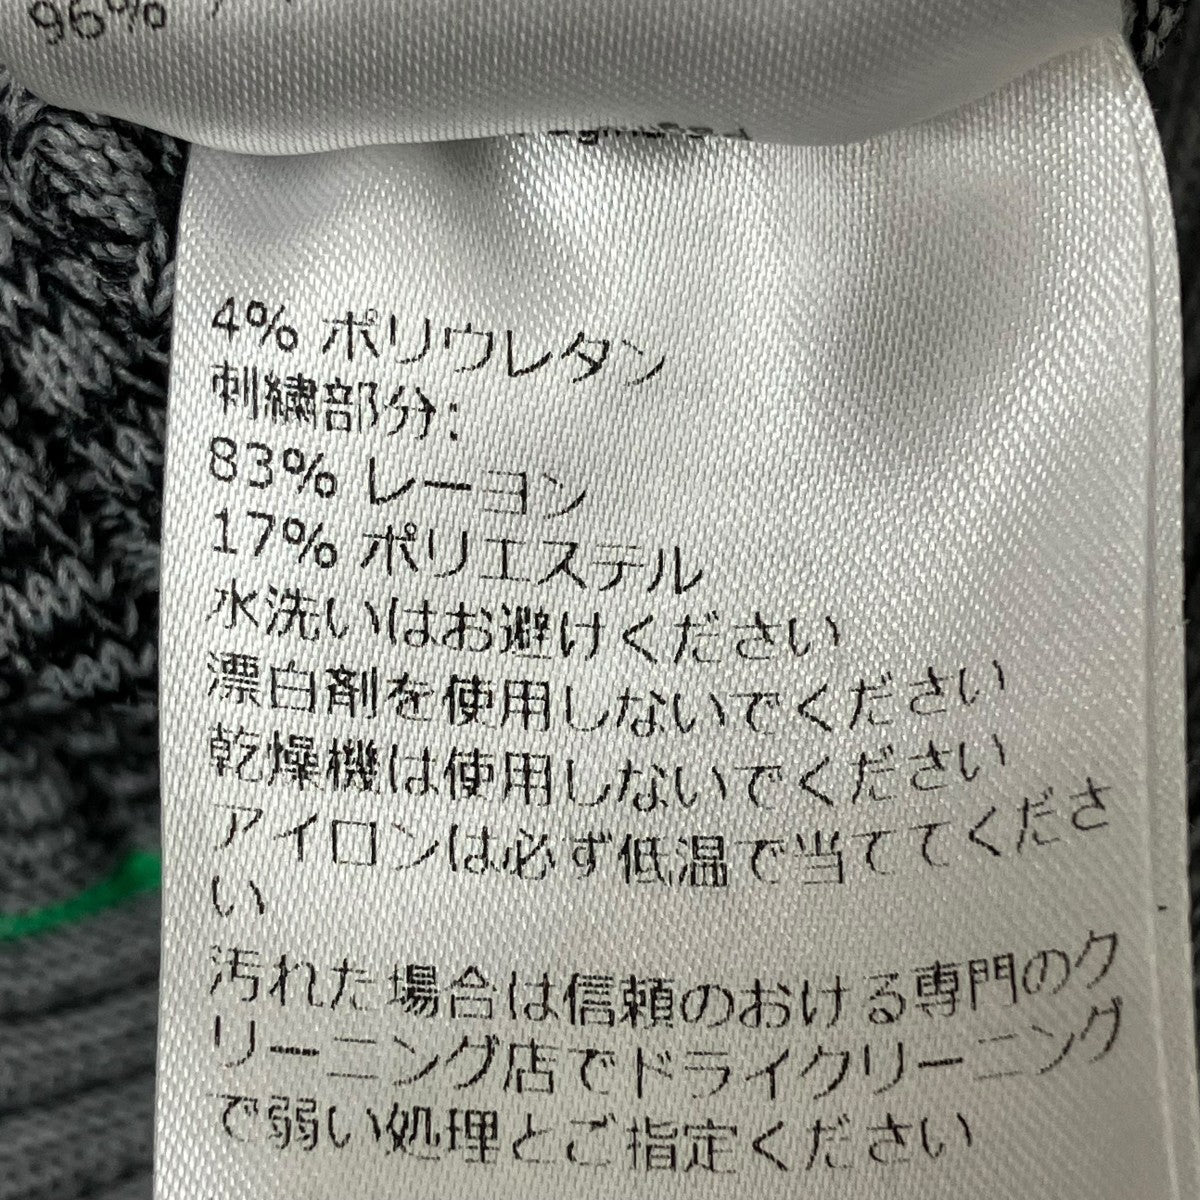 96%
4% ポリウレタン
刺繍部分:
83% レーヨン
17% ポリエステル
水洗いはお避けください
漂白剤を使用しないでください
乾燥機は使用しないでください
アイロンは必ず低温で当ててくださ
い
汚れた場合は信頼のおける専門のク
リーニング店でドライクリーニング
で弱い処理とご指定ください